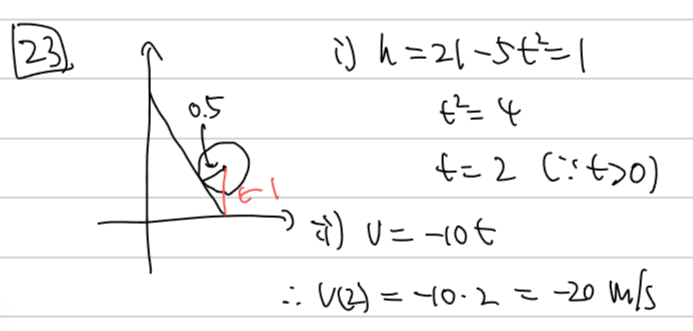 23
i) h = 21 - 5t² = 1
0.5
t² = 4
t = 2 (∵ t > 0)
← 1
ii) v = -10t
∴ v(2) = -10 · 2 = -20 m/s